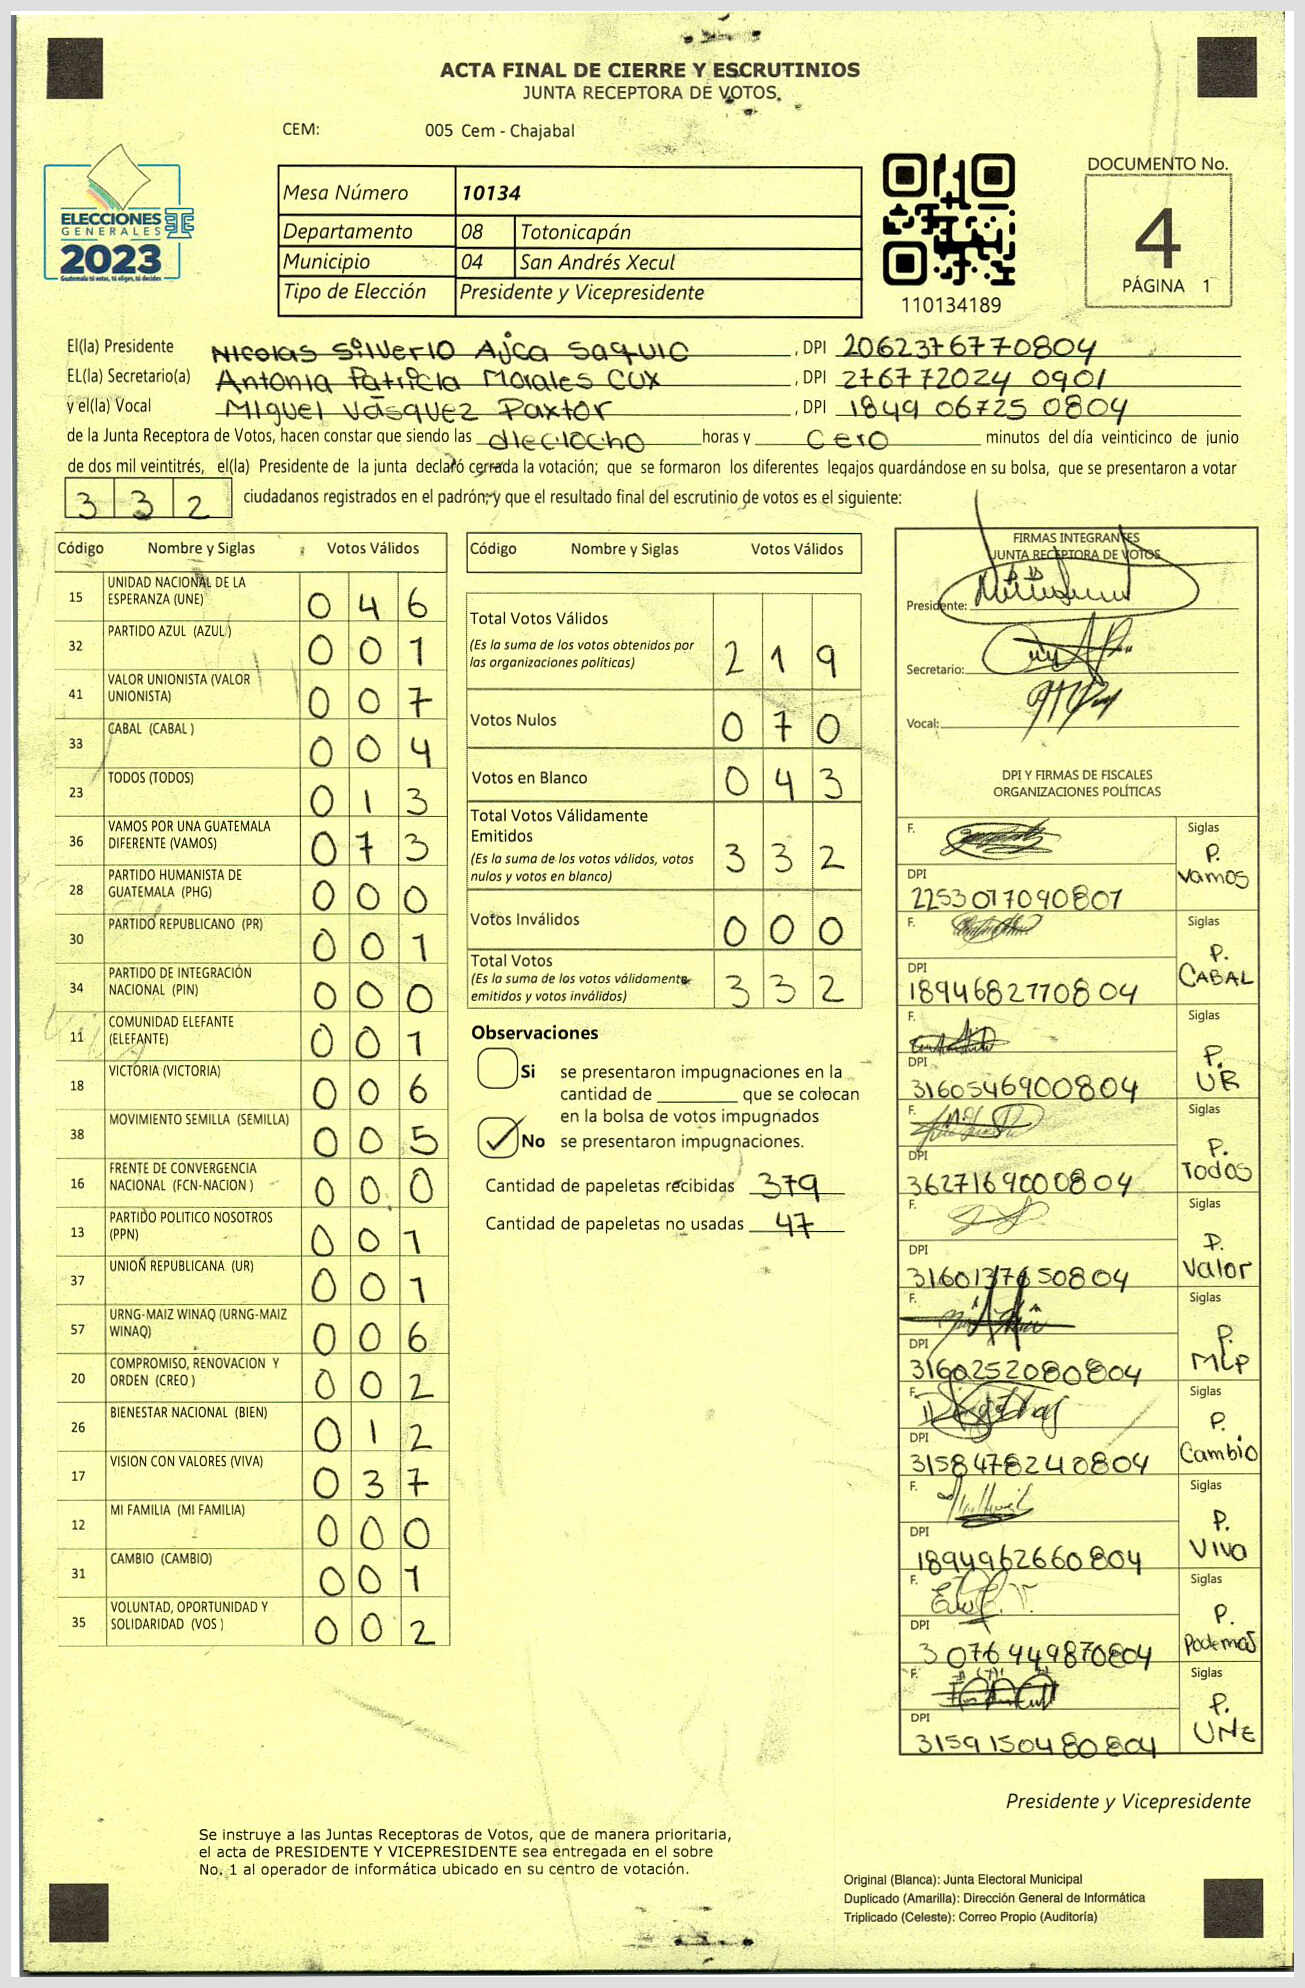 ACTA FINAL DE CIERRE Y ESCRUTINIOS
JUNTA RECEPTORA DE VOTOS.
CEM: 005 Cem - Chajabal
ELECCIONES
GENERALES
2023
Guatemala tú votas, tú eliges, tú decides
Mesa Número 10134
Departamento 08 Totonicapán
Municipio 04 San Andrés Xecul
Tipo de Elección Presidente y Vicepresidente
110134189
DOCUMENTO No.
4
PÁGINA 1
El(la) Presidente Nicolas Silverio Ajca Saquic, DPI 2062376770804
EL(la) Secretario(a) Antonia Patricia Morales Cux, DPI 276772024 0901
y el(la) Vocal Miguel Vásquez Paxtor, DPI 1849 06725 0804
de la Junta Receptora de Votos, hacen constar que siendo las dieciocho horas y cero minutos del día veinticinco de junio
de dos mil veintitrés, el(la) Presidente de la junta declaró cerrada la votación; que se formaron los diferentes legajos guardándose en su bolsa, que se presentaron a votar
332 ciudadanos registrados en el padrón; y que el resultado final del escrutinio de votos es el siguiente:
Código Nombre y Siglas Votos Válidos
15 UNIDAD NACIONAL DE LA ESPERANZA (UNE) 046
32 PARTIDO AZUL (AZUL) 001
41 VALOR UNIONISTA (VALOR UNIONISTA) 007
33 CABAL (CABAL) 004
23 TODOS (TODOS) 013
36 VAMOS POR UNA GUATEMALA DIFERENTE (VAMOS) 073
28 PARTIDO HUMANISTA DE GUATEMALA (PHG) 000
30 PARTIDO REPUBLICANO (PR) 001
34 PARTIDO DE INTEGRACIÓN NACIONAL (PIN) 000
11 COMUNIDAD ELEFANTE (ELEFANTE) 001
18 VICTORIA (VICTORIA) 006
38 MOVIMIENTO SEMILLA (SEMILLA) 005
16 FRENTE DE CONVERGENCIA NACIONAL (FCN-NACION) 000
13 PARTIDO POLITICO NOSOTROS (PPN) 001
37 UNIOÑ REPUBLICANA (UR) 001
57 URNG-MAIZ WINAQ (URNG-MAIZ WINAQ) 006
20 COMPROMISO, RENOVACION Y ORDEN (CREO) 002
26 BIENESTAR NACIONAL (BIEN) 012
17 VISION CON VALORES (VIVA) 037
12 MI FAMILIA (MI FAMILIA) 000
31 CAMBIO (CAMBIO) 001
35 VOLUNTAD, OPORTUNIDAD Y SOLIDARIDAD (VOS) 002
Código Nombre y Siglas Votos Válidos
Total Votos Válidos 219
(Es la suma de los votos obtenidos por
las organizaciones políticas)
Votos Nulos 070
Votos en Blanco 043
Total Votos Válidamente
Emitidos 332
(Es la suma de los votos válidos, votos
nulos y votos en blanco)
Votos Inválidos 000
Total Votos 332
(Es la suma de los votos válidamente
emitidos y votos inválidos)
Observaciones
Si se presentaron impugnaciones en la
cantidad de ________ que se colocan
en la bolsa de votos impugnados
No se presentaron impugnaciones.
Cantidad de papeletas recibidas 379
Cantidad de papeletas no usadas 47
FIRMAS INTEGRANTES
JUNTA RECEPTORA DE VOTOS
Presidente:
Secretario:
Vocal:
DPI Y FIRMAS DE FISCALES
ORGANIZACIONES POLÍTICAS
F. Siglas P. Vamos
DPI 2253017090807
F. Siglas P. CABAL
DPI 1894682770804
F. Siglas P. UR
DPI 3160546900804
F. Siglas P. Todos
DPI 3627169000804
F. Siglas P. Valor
DPI 3160137650804
F. Siglas P. MLP
DPI 3160252080804
F. Siglas P. Cambio
DPI 3158478240804
F. Siglas P. Viva
DPI 1894962660804
F. Siglas P. Podemos
DPI 3076449870804
F. Siglas P. UNE
DPI 3159150480804
Presidente y Vicepresidente
Se instruye a las Juntas Receptoras de Votos, que de manera prioritaria,
el acta de PRESIDENTE Y VICEPRESIDENTE sea entregada en el sobre
No. 1 al operador de informática ubicado en su centro de votación.
Original (Blanca): Junta Electoral Municipal
Duplicado (Amarilla): Dirección General de Informática
Triplicado (Celeste): Correo Propio (Auditoría)